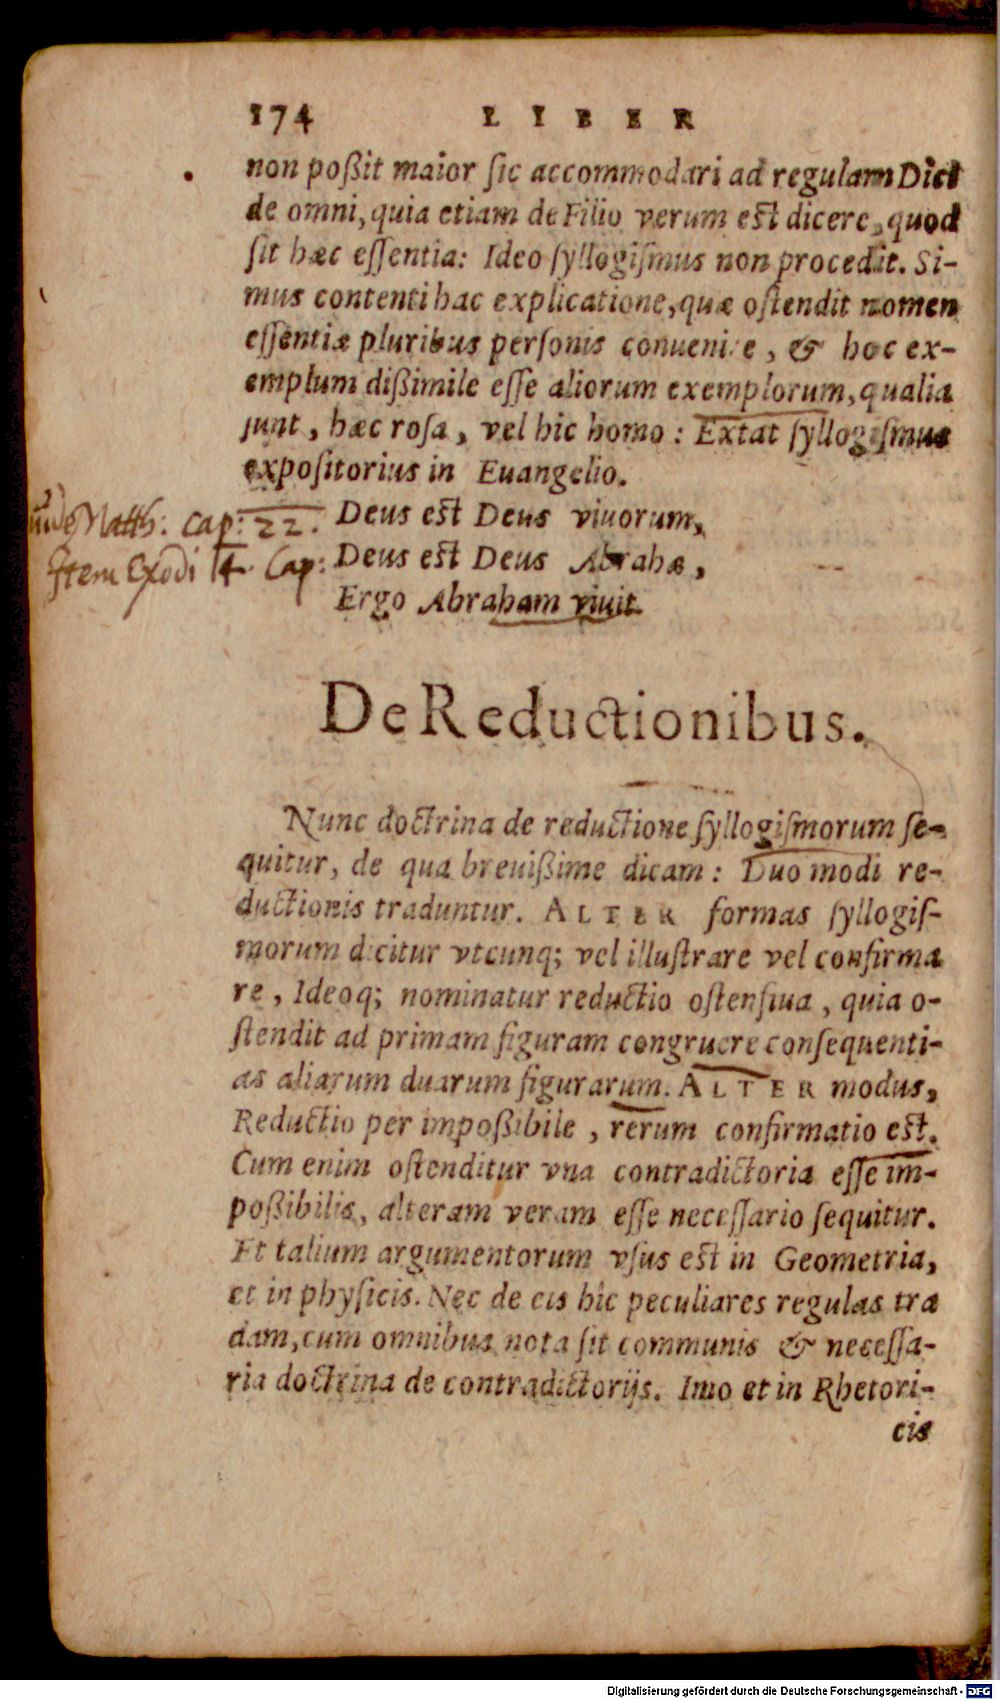 174 LIBER
non poßit maior ſic accommodari ad regulam Dici
de omni, quia etiam de Filio verum est dicere, quod
ſit hæc eſſentia: Ideo ſyllogiſmus non procedit. Si-
mus contenti hac explicatione, quæ oſtendit nomen
eſſentiæ pluribus perſonis conuenire, & hoc ex-
emplum dißimile eſſe aliorum exemplorum, qualia
ſunt, hæc roſa, vel hic homo: Extat ſyllogiſmus
expoſitorius in Euangelio.
Matth. cap: 22. Deus est Deus viuorum,
Item Exodi 4 Cap: Deus est Deus Abrahæ,
Ergo Abraham viuit.
De Reductionibus.
Nunc doctrina de reductione ſyllogiſmorum ſe-
quitur, de qua breuißime dicam: Duo modi re-
ductionis traduntur. ALTER formas ſyllogiſ-
morum dicitur vtcunq; vel illuſtrare vel confirma
re, Ideoq; nominatur reductio oſtenſiua, quia o-
ſtendit ad primam figuram congruere conſequenti-
as aliarum duarum figurarum. ALTER modus,
Reductio per impoßibile, rerum confirmatio est.
Cum enim oſtenditur vna contradictoria eſſe im-
poßibilis, alteram veram eſſe neceſſario ſequitur.
Et talium argumentorum vſus est in Geometria,
et in phyſicis. Nec de eis hîc peculiares regulas tra
dam, cum omnibus nota ſit communis & neceſſa-
ria doctrina de contradictorijs. Imo et in Rhetori-
cis
Digitalisierung gefördert durch die Deutsche Forschungsgemeinschaft - DFG